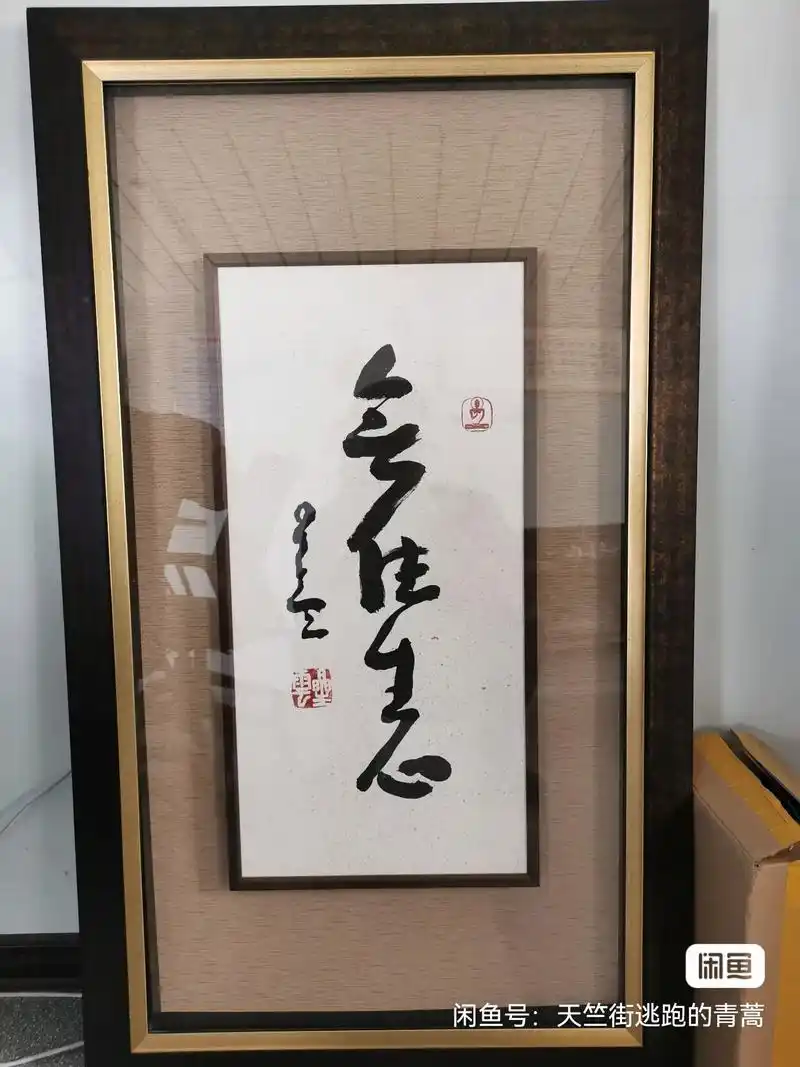 無住生心
星雲
星雲
闲鱼
闲鱼号：天竺街逃跑的青蒿